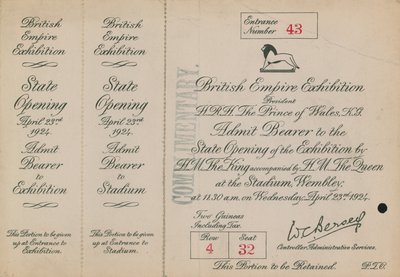 British
Empire
Exhibition
State
Opening
April 23rd
1924.
Admit
Bearer
to
Exhibition
This Portion to be given
up at Entrance to
Exhibition.
British
Empire
Exhibition
State
Opening
April 23rd
1924.
Admit
Bearer
to
Stadium
This Portion to be given
up at Entrance to
Stadium.
COMPLIMENTARY.
Entrance
Number 43
British Empire Exhibition
President
H.R.H. The Prince of Wales, K.G.
Admit Bearer to the
State Opening of the Exhibition by
H.M. The King accompanied by H.M. The Queen
at the Stadium, Wembley,
at 11.30 a.m. on Wednesday, April 23rd 1924.
Two Guineas
Including Tax.
Row Seat
4 32
Controller, Administrative Services.
This Portion to be Retained. P.T.O.